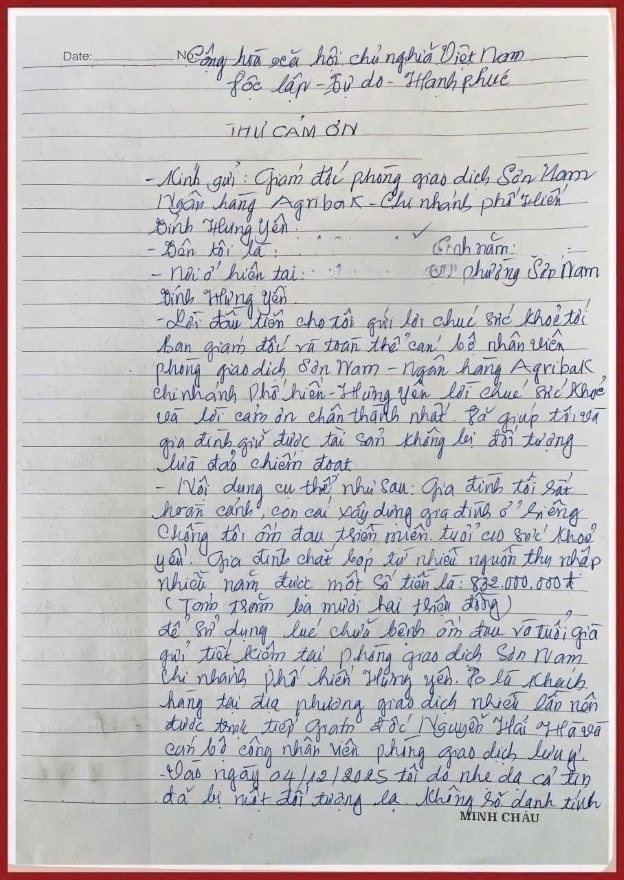 Date: No:
Cộng hoà xã hội chủ nghĩa Việt Nam
Độc lập - Tự do - Hạnh phúc
THƯ CẢM ƠN
- Kính gửi: Giám đốc phòng giao dịch Sơn Nam
Ngân hàng Agribak - Chi nhánh phố Hiến
Tỉnh Hưng Yên.
- Tên tôi là: Sinh năm:
- Nơi ở hiện tại: phường Sơn Nam
Tỉnh Hưng Yên.
- Lời đầu tiên cho tôi gửi lời chúc sức khoẻ tới
Ban giám đốc và toàn thể cán bộ nhân viên
phòng giao dịch Sơn Nam - Ngân hàng Agribak
chi nhánh Phố hiến - Hưng Yên lời chúc sức khoẻ
và lời cảm ơn chân thành nhất. Đã giúp tôi và
gia đình giữ được tài sản không bị đối tượng
lừa đảo chiếm đoạt
- Nội dung cụ thể như sau: Gia đình tôi rất
hoàn cảnh, con cái xây dựng gia đình ở riêng
Chồng tôi ốm đau triền miên. tuổi cao sức khoẻ
yếu. Gia đình chắt bóp từ nhiều nguồn thu nhập
nhiều năm được một số tiền là: 832.000.000đ
(Tám trăm ba mươi hai triệu đồng)
để sử dụng lúc chữa bệnh ốm đau và tuổi già
gửi tiết kiệm tại phòng giao dịch Sơn Nam
chi nhánh phố hiến Hưng yên. Do là khách
hàng tại địa phương giao dịch nhiều lần nên
được trực tiếp Giám đốc Nguyễn Hải Hà và
cán bộ công nhân viên phòng giao dịch lưu ý.
- Vào ngày 04/12/2025 tôi do nhẹ dạ cả tin
đã bị một đối tượng lạ không rõ danh tính
MINH CHÂU